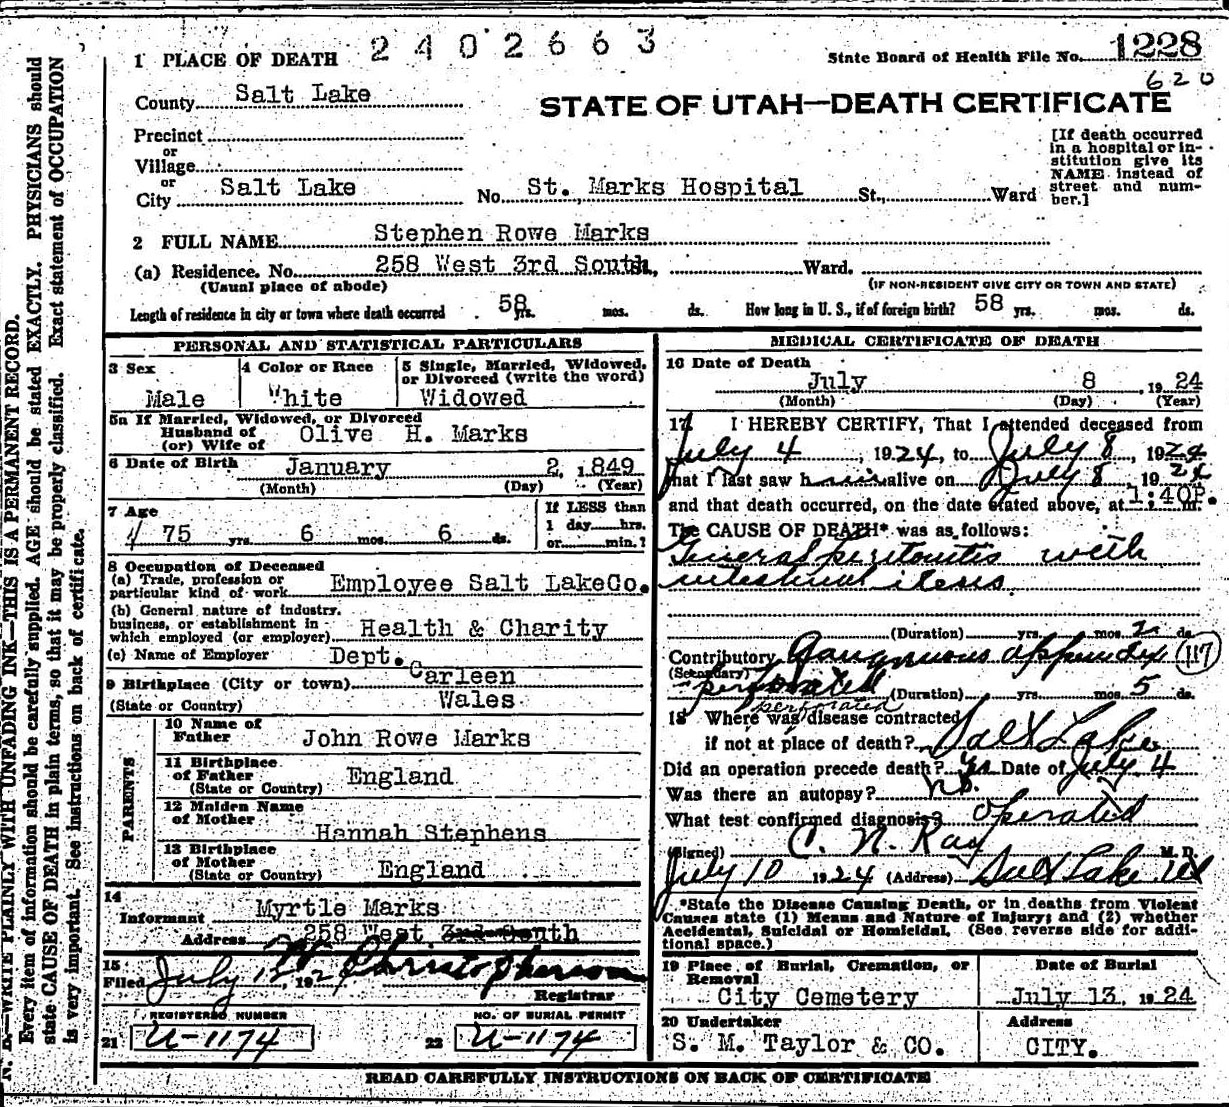 2402663
State Board of Health File No. 1228
620
1 PLACE OF DEATH
County Salt Lake
STATE OF UTAH—DEATH CERTIFICATE
Precinct
or
Village
or
City Salt Lake No. St. Marks Hospital St., Ward
[If death occurred
in a hospital or in-
stitution give its
NAME instead of
street and num-
ber.]
2 FULL NAME Stephen Rowe Marks
(a) Residence. No. 258 West 3rd South St., Ward.
(Usual place of abode) (IF NON-RESIDENT GIVE CITY OR TOWN AND STATE)
Length of residence in city or town where death occurred 58 yrs. mos. ds. How long in U. S., if of foreign birth? 58 yrs. mos. ds.
PERSONAL AND STATISTICAL PARTICULARS
3 Sex
Male
4 Color or Race
White
5 Single, Married, Widowed,
or Divorced (write the word)
Widowed
5a If Married, Widowed, or Divorced
Husband of
(or) Wife of Olive H. Marks
6 Date of Birth January 2, 1849
(Month) (Day) (Year)
7 Age
75 yrs. 6 mos. 6 ds.
If LESS than
1 day hrs.
or min.?
8 Occupation of Deceased
(a) Trade, profession or
particular kind of work Employee Salt LakeCo.
(b) General nature of industry,
business, or establishment in
which employed (or employer) Health & Charity
(c) Name of Employer Dept.
9 Birthplace (City or town) Carleen
(State or Country) Wales
PARENTS
10 Name of
Father John Rowe Marks
11 Birthplace
of Father England
(State or Country)
12 Maiden Name
of Mother
Hannah Stephens
13 Birthplace
of Mother
(State or Country) England
14
Informant Myrtle Marks
Address 258 West 3rd South
15
Filed July 192 Christopherson
Registrar
REGISTERED NUMBER
21 U-1174
NO. OF BURIAL PERMIT
22 U-1174
MEDICAL CERTIFICATE OF DEATH
16 Date of Death
July 8 1924
(Month) (Day) (Year)
17 I HEREBY CERTIFY, That I attended deceased from
July 4, 1924, to July 8, 1924
that I last saw him alive on July 8 1924
and that death occurred, on the date stated above, at 1:40P. m.
The CAUSE OF DEATH* was as follows:
General peritonitis with
intestinal ileus
(Duration) yrs. mos. 2 ds.
Contributory Gangrenous appendix 117
(Secondary)
perforated (Duration) yrs. mos. 5 ds.
perforated
18 Where was disease contracted
if not at place of death? Salt Lake
Did an operation precede death? Yes Date of July 4
Was there an autopsy? no.
What test confirmed diagnosis? operated
(Signed) C. N. Ray M. D.
July 10 1924 (Address) Salt Lake Ut
*State the Disease Causing Death, or in deaths from Violent
Causes state (1) Means and Nature of Injury; and (2) whether
Accidental, Suicidal or Homicidal. (See reverse side for addi-
tional space.)
19 Place of Burial, Cremation, or
Removal
City Cemetery
Date of Burial
July 13, 1924
20 Undertaker
S. M. Taylor & CO.
Address
CITY.
READ CAREFULLY INSTRUCTIONS ON BACK OF CERTIFICATE
N. B.—WRITE PLAINLY WITH UNFADING INK—THIS IS A PERMANENT RECORD.
Every item of information should be carefully supplied. AGE should be stated EXACTLY. PHYSICIANS should
state CAUSE OF DEATH in plain terms, so that it may be properly classified. Exact statement of OCCUPATION
is very important. See instructions on back of certificate.